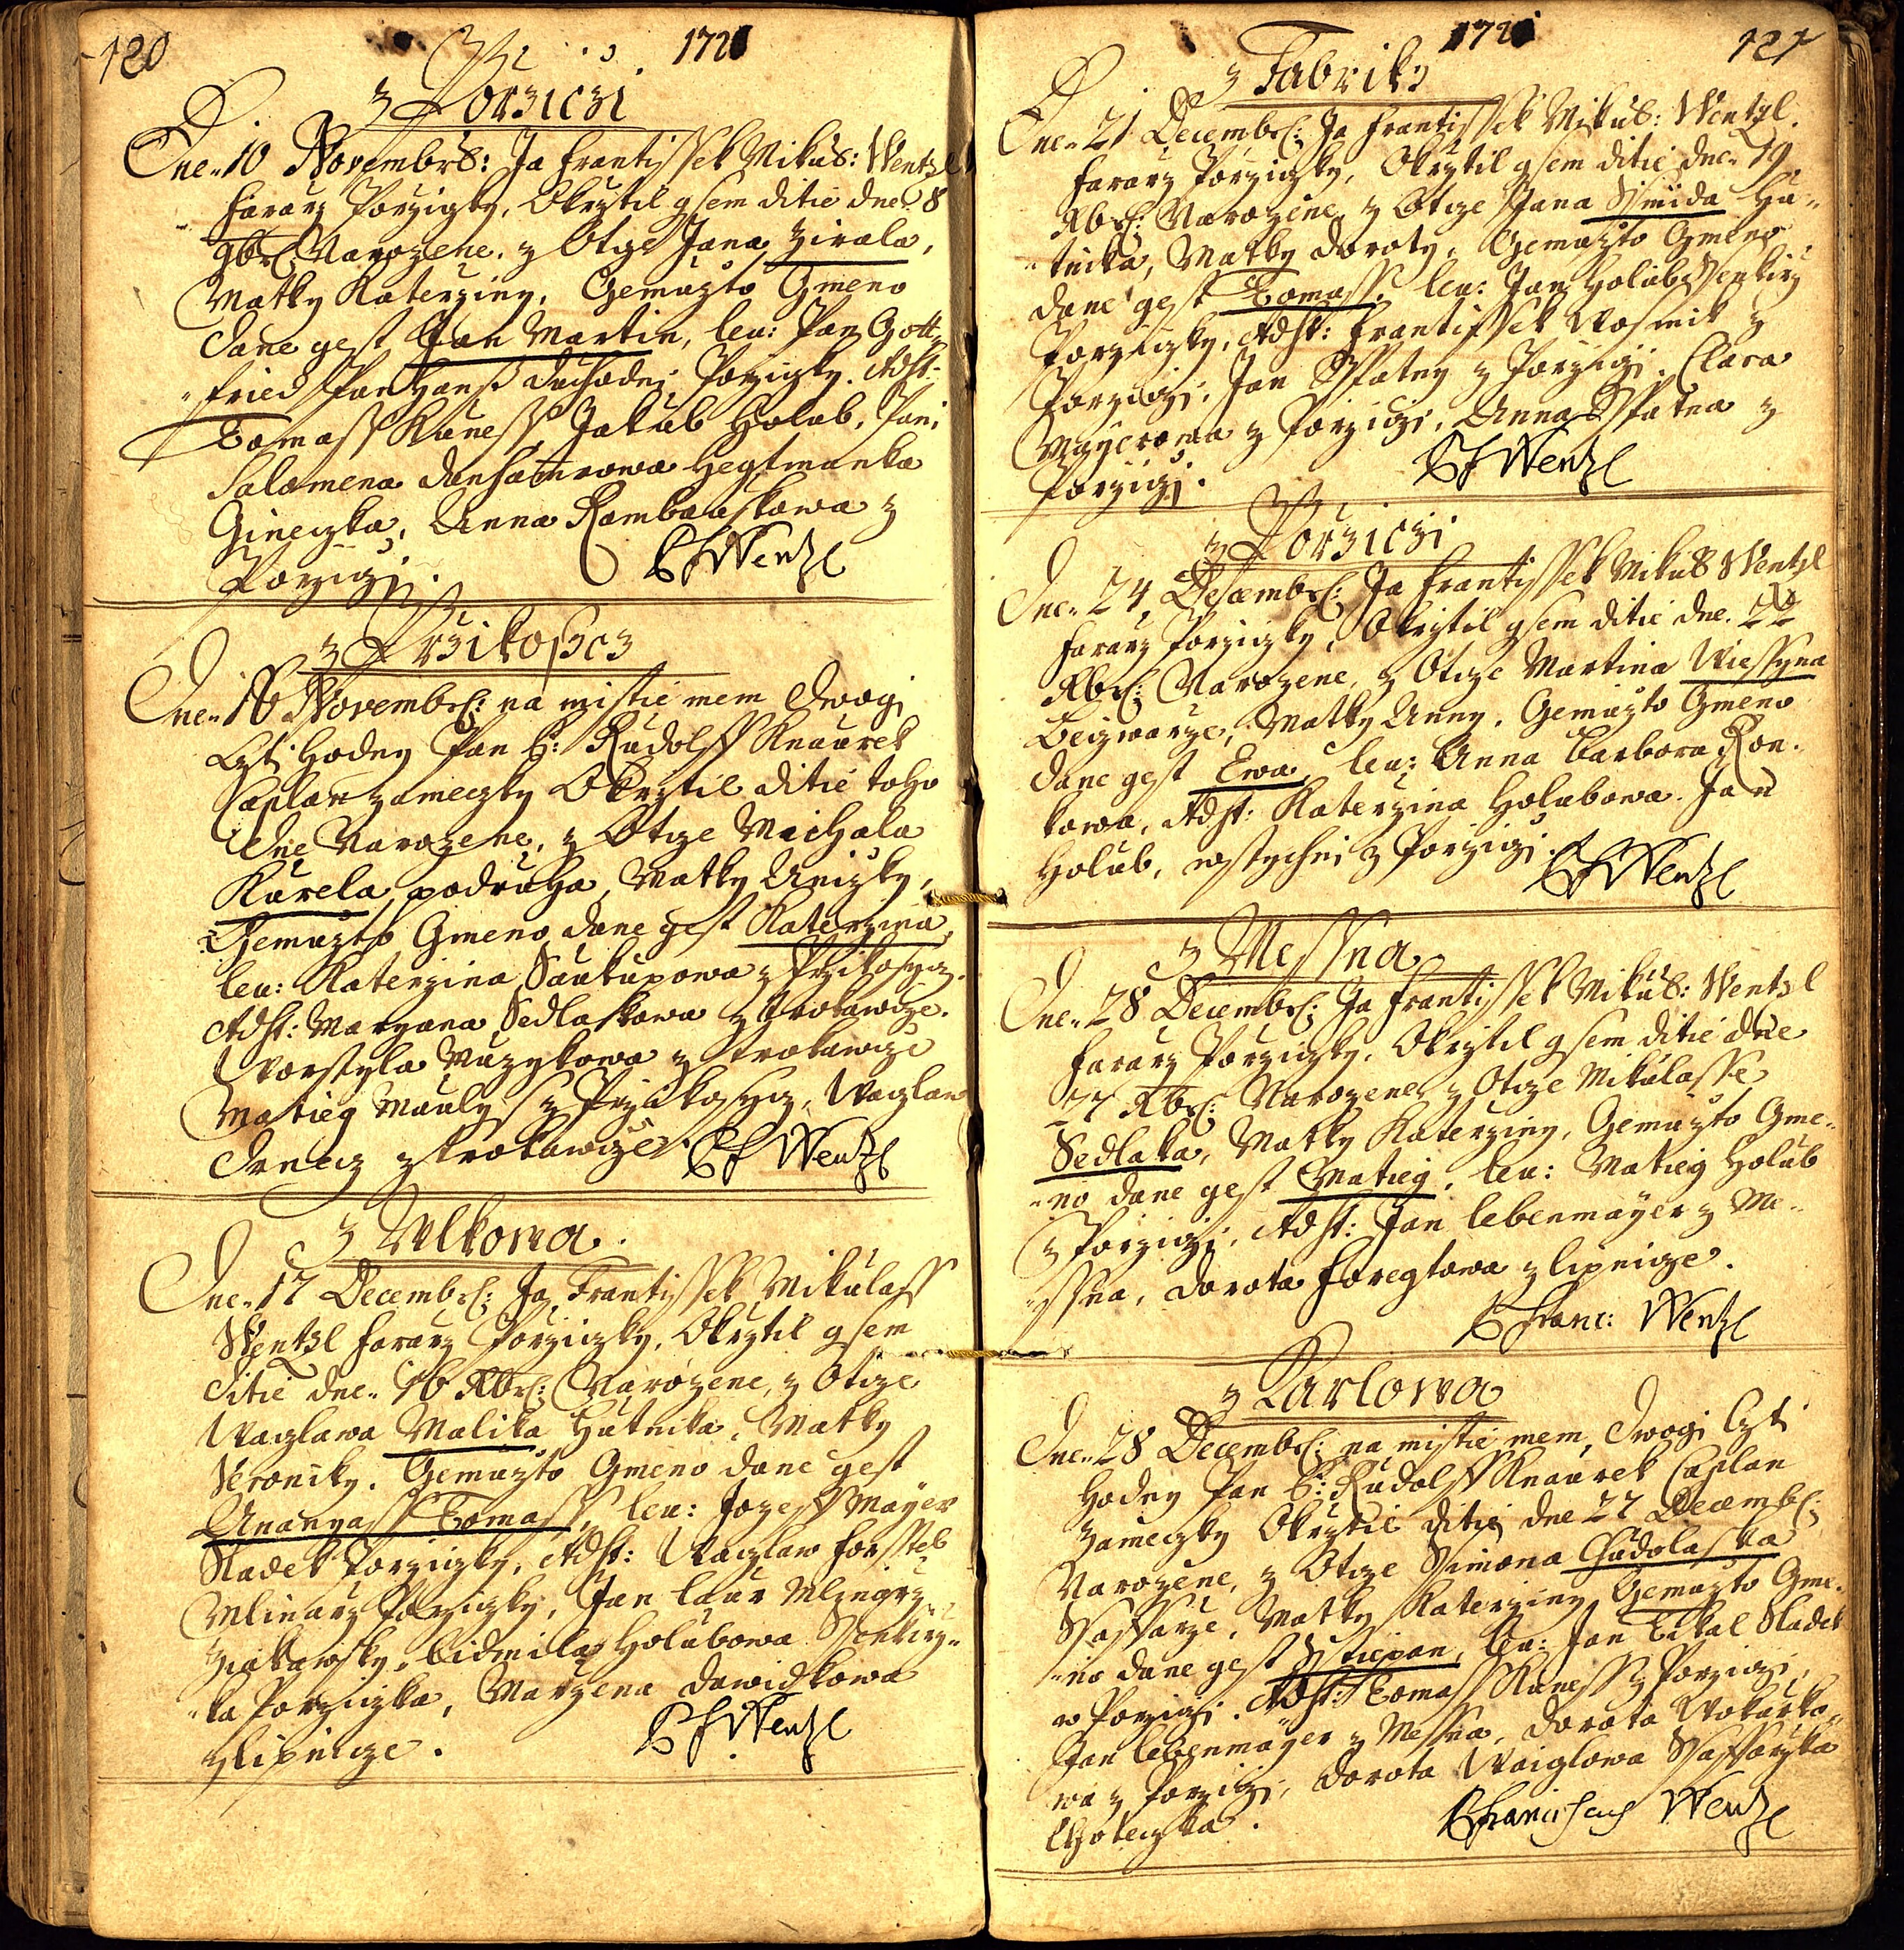 120
1721
z Porziczi
Dne 10 Novembris: Ja Frantissek Mikus: Wentzl
Fararz Porziczky, Okrztil gsem ditie dne 8
9brs: Narozene, z Otcze Jana Zirala,
Matky Katerziny, Gemuzto Gmeno
dane gest Jan Martin, leu: Pan Gott-
fried Pan Hanß duchodni Porziczky. Adst:
Tomass Kuness, Jakub Holub, Pani
Salomena Hegtmanka
Gineczka, Anna z
Porziczi. P F Wentzl
z Przikosycz
Dne 16 Novembrs: na mistie mem Dwogi
Czti Hodny Pan P: Rudolff Knaurek
Caplan zameczky Okrztil ditie toho
dne Narozene, z Otcze Michala
Karela, podruha, Matky Aniczky,
Gemuzto Gmeno dane gest Katerzina,
leu: Katerzina Saukupowa z Przikosycz.
Adst: Maryana Sedlaskowa z Trokawcze.
Worssyla Muzykowa z Trokawcze
Matieg Maulyss z Przikosycz, Waczlaw
z Trokawcze. P F Wentzl
z Wlkowa.
Dne 17 Decembrs: Ja Frantissek Mikulass
Wentzl Fararz Porziczky, Okrztil gsem
ditie dne 16 Xbrs: Narozene, z Otcze
Waczlawa Malika Hutnika, Matky
Veroniky. Gemuzto Gmeno dane gest
Ananyass Tomass, leu: Jozeff Mayer
Sladek Porziczky, Adst: Waczlaw
Mlinarz Porziczky, Jan Laur Mlynarz
Lidmila Holubowa Ssenkirz-
ka Porziczka, Marzena Dawidkowa
z Lipnicze. P F Wentzl
1721
121
z Fabriky
Dne 21 Decembrs: Ja Frantissek Mikus: Wentzl.
Fararz Porziczky, Okrztil gsem ditie dne 19
Xbrs: Narozene, z Otcze Jana Ssmida Hu-
tnika, Matky Doroty, Gemuzto Gmeno
dane gest Tomass, leu: Jan Holub Ssenkirz
Porziczky, Adst: Frantissek Wosmik z
Porziczi, Jan Sspatny z Porziczi. Clara
Mayerowa z Porziczi, Anna Sspatna z
Porziczi. P F Wentzl
z Porziczi
Dne 24 Decembrs: Ja Frantissek Mikus Wentzl
Fararz Porziczky, Okrztil gsem ditie dne 22
Xbrs: Narozene, z Otcze Martina Wiessyna
Beczwarze, Matky Anny. Gemuzto Gmeno
dane gest Ewa, leu: Anna Barbora Kon-
kowa, Adst: Katerzina Holubowa. Jan
Holub, wssyckni z Porziczi. P F Wentzl
z Messna
Dne 28 Decembrs: Ja Frantissek Mikus: Wentzl
Fararz Porziczky, Okrztil gsem ditie dne
27 Xbrs: Narozene z Otcze Mikulasse
Sedlaka, Matky Katerziny, Gemuzto Gme-
no dane gest Matieg, leu: Matieg Holub
z Porziczi. Adst: Jan Lebenmayer z Me-
ssna, Dorota Foregtowa z Lipnicze.
P Franc: Wentzl
z Karlowa
Dne 28 Decembrs: na mistie mem, Dwogi Czti
Hodny Pan P: Rudolff Knaurek Caplan
zameczky Okrztil ditie dne 27 Decembrs:
Narozene, z Otcze Ssimona Chudolaska
Ssaffarze, Matky Katerziny, Gemuzto Gme-
no dane gest Sstiepan, leu: Jan Cikal Sladek
w Porziczi. Adst: Tomass Kuness z Porziczi,
Jan Lebenmayer z Messna, Dorota Wokurko-
wa z Porziczi, Dorota Waiglowa Ssaffarzka
Choteczka.
P Franciscus Wentzl